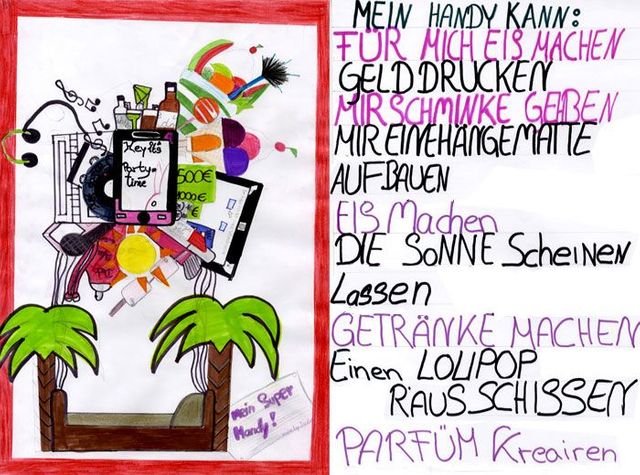 Hey It's
Party-
time
500€
1000€
mein Super
Handy!
MEIN HANDY KANN:
FÜR MICH EIS MACHEN
GELD DRUCKEN
MIR SCHMINKE GEBEN
MIR EINE HÄNGEMATTE
AUFBAUEN
EIS Machen
DIE SoNNE Scheinen
Lassen
GETRÄNKE MACHEN
Einen LOLIPOP
RAUSSCHISSEN
PARFÜM Kreairen